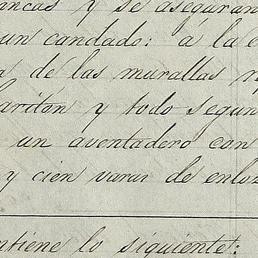 ancas y se aseguran
un candado: á la e
de las murallas
y todo segun
un aventadero con
y cien varas de enlo
ntiene lo siguiente: